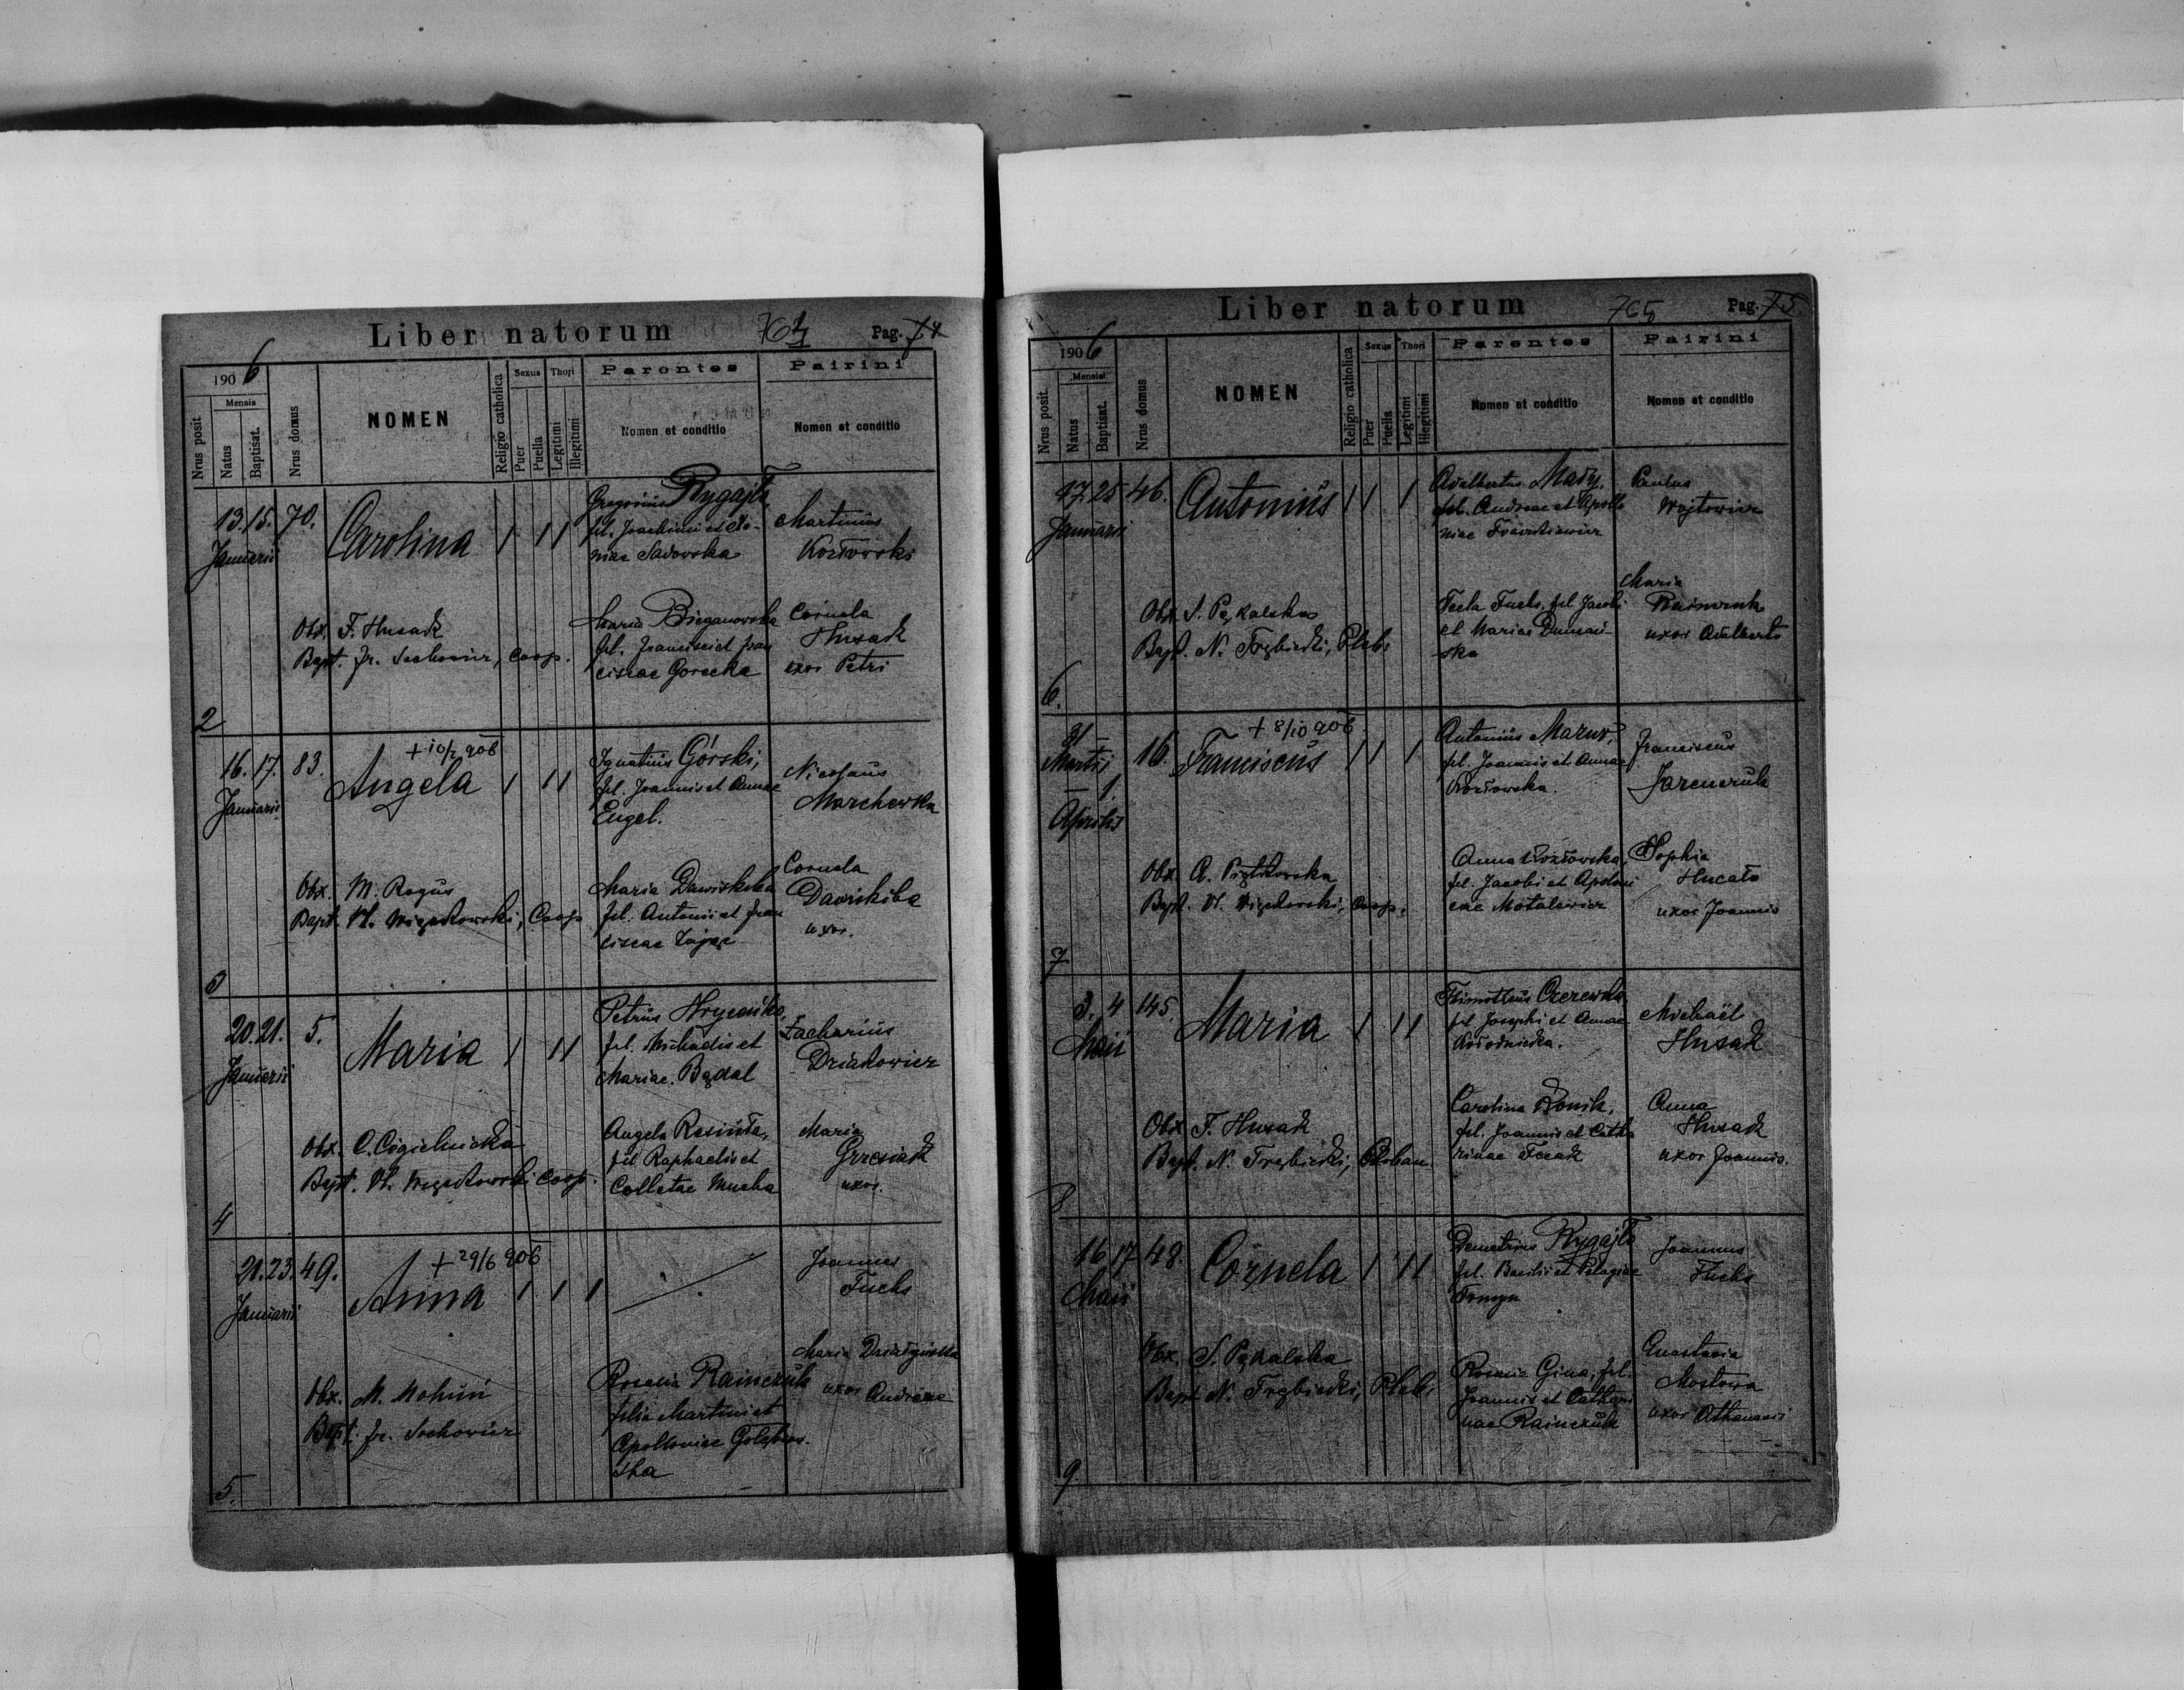 Liber natorum 764 Pag. 74
1906
Mensis
Nrus posit
Natus
Baptisat.
Nrus domus
NOMEN
Religio catholica
Sexus
Puer
Puella
Thori
Legitimi
Illegitimi
Parentes
Nomen et conditio
Patrini
Nomen et conditio
2
13. 15. 70.
Januarii
Carolina
1 1 1
Gregorius Rygajło,
fil. Joachimi et
niae Sadowska
Martinus
Kozłowski
Obx. F. Husak
Bapt. Fr. Sochowicz, Coop.
Maria Bieganowska
fil. Francisci et Fran
ciscae Gorecka
Cornela
Husak
uxor Petri
3
16. 17. 83.
Januarii
+ 10/7 906
Angela
1 1 1
Ignatius Górski,
fil. Joannis et Annae
Engel.
Nicolaus
Marchewka
Obx. M. Rogus
Bapt. Wł. Więckowski, Coop
Maria Dawiskiba
fil. Antonii et Fran
ciscae Zając
Cornela
Dawiskiba
uxor.
4
20. 21. 5.
Januarii
Maria
1 1 1
Petrus Hrycańko,
fil. Michaelis et
Mariae Bądal
Zacharius
Dziakowicz
Obx. C. Cegielnicka
Bapt. Wł. Więckowski Coop.
Angela
fil Raphaelis et
Colletae Mucha
Maria
Grzesiak
uxor.
5.
21. 23. 49.
Januarii
+ 29/6 906
Anna
1 1 1
Joannes
Fuchs
Obx. M. Mohuń
Bapt. Fr. Sochowicz
Rosalia Rainczuk
filia Martini et
Apolloniae Gołębiow.
ska
Maria
uxor Andreae
Liber natorum 765 Pag. 75
1906
Mensis
Nrus posit
Natus
Baptisat.
Nrus domus
NOMEN
Religio catholica
Sexus
Puer
Puella
Thori
Legitimi
Illegitimi
Parentes
Nomen et conditio
Patrini
Nomen et conditio
6.
17. 25 46.
Januarii
Antonius
1 1 1
Adalbertus Mady,
fil. Andreae et Apollo
niae
Paulus
Wojtowicz
Obx. S. Pękalska
Bapt. N. Trębicki, Pleb.
Tecla Fuchs, fil Jacobi
et Mariae Dumań-
ska
Maria
Rainczuk
uxor Adalberti
7
31 –
Martii
– 1.
Aprilis
16.
+ 8/10 906
Franciscus
1 1 1
Antonius Mazur,
fil. Joannis et Annae
Kozłowska.
Franciscus
Jarenczuk
Obx. A. Piątkowska
Bapt. Wł. Więckowski, Coop.
Anna Kozłowska,
fil. Jacobi et Apoloni
eae Motalewicz
Sophia
Hucało
uxor Joannis
8
3. 4 145.
Maii
Maria
1 1 1
Timotheus Czerewka
fil Josephi et Annae
Kołodnicka.
Michaël
Husak
Obx F. Husak
Bapt. N. Trębicki, Pleban.
Carolina Konik,
fil. Joannis et Catha
rinae
Anna
Husak
uxor Joannis.
9.
16 17 48.
Maii
Cornela
1 1 1
Demetrius Rygajło
fil. Basilii et Pelagiae
Joannes
Fuchs
Obx. S. Pękalska
Bapt N. Trębicki, Pleb.
Rosalia Gina, fil.
Joannis et Cathari
nae Rainczuk
Anastasia
Mostowa
uxor Athanasii